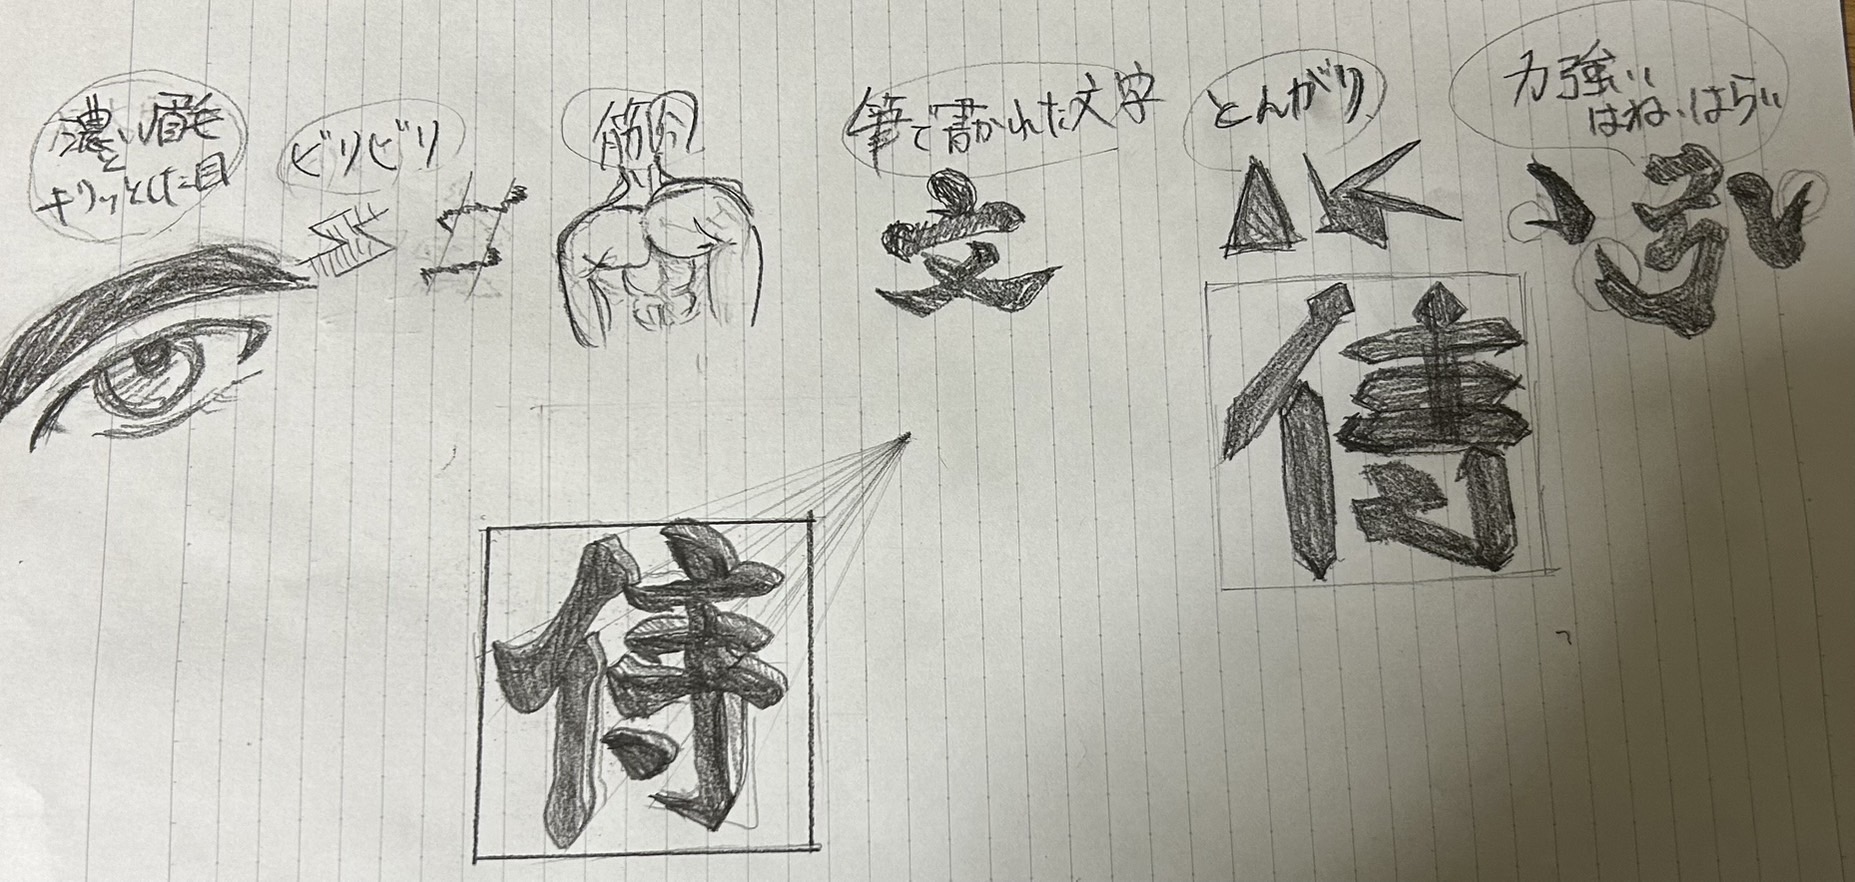 濃い眉毛
と
キリッとした目
ビリビリ
筋肉
筆で書かれた文字
とんがり
力強い
はね、はらい
文
侍
侍